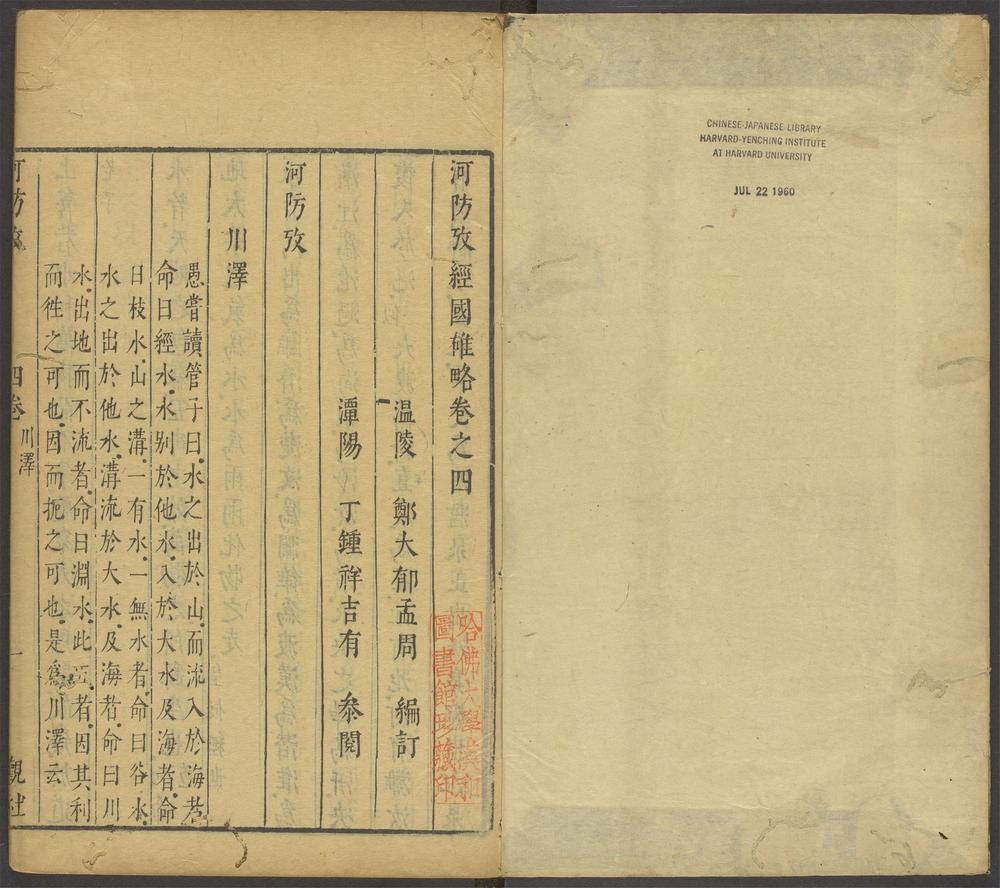 CHINESE-JAPANESE LIBRARY
HARVARD-YENCHING INSTITUTE
AT HARVARD UNIVERSITY
JUL 22 1960
河防攷經國雄略卷之四
溫陵 鄭大郁孟周 編訂
潭陽 丁鍾祥吉有 叅閱
河防攷
川澤
愚嘗讀管子曰水之出於山而流入於海者
命曰經水水別於他水入於大水及海者命
曰枝水山之溝一有水一無水者命曰谷水
水之出於他水溝流於大水及海者命曰川
水出地而不流者命曰淵水此五者因其利
而徃之可也因而扼之可也是爲川澤云
河防攷 四卷 川澤 一 觀社
哈佛大學漢和
圖書館珍藏印